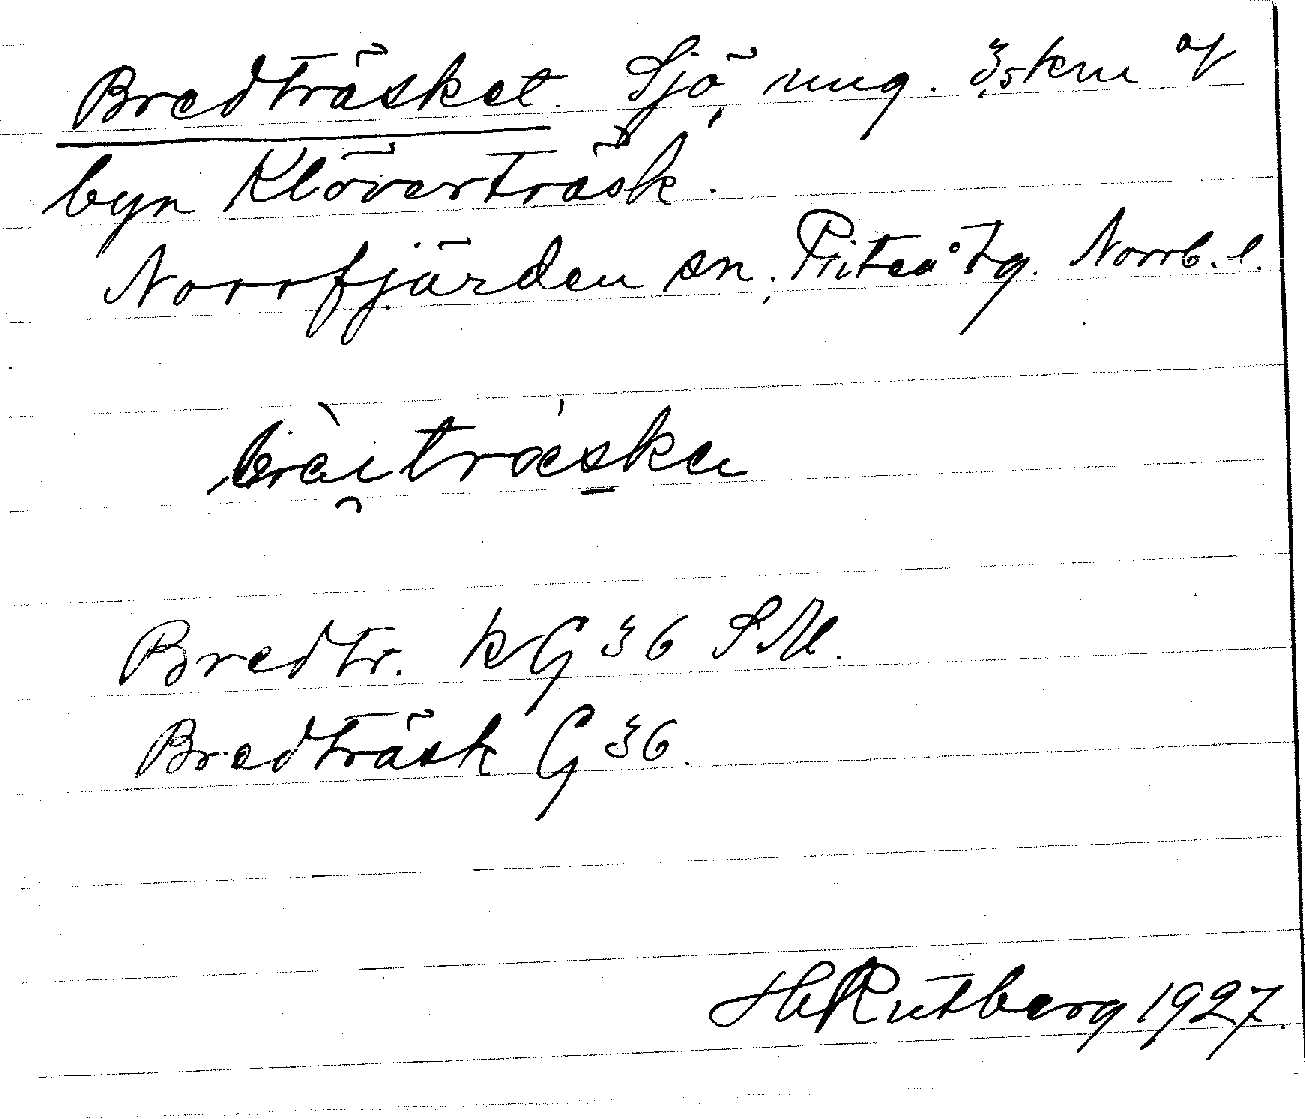 Bredträsket. Sjö, ung. 3,5 km av
byn Klöverträsk.
Norrfjärden sn, Piteå tg. Norrb. l.
Bredtr. k G 36 SM.
Bredträsk G 36.
H Rutberg 1927.